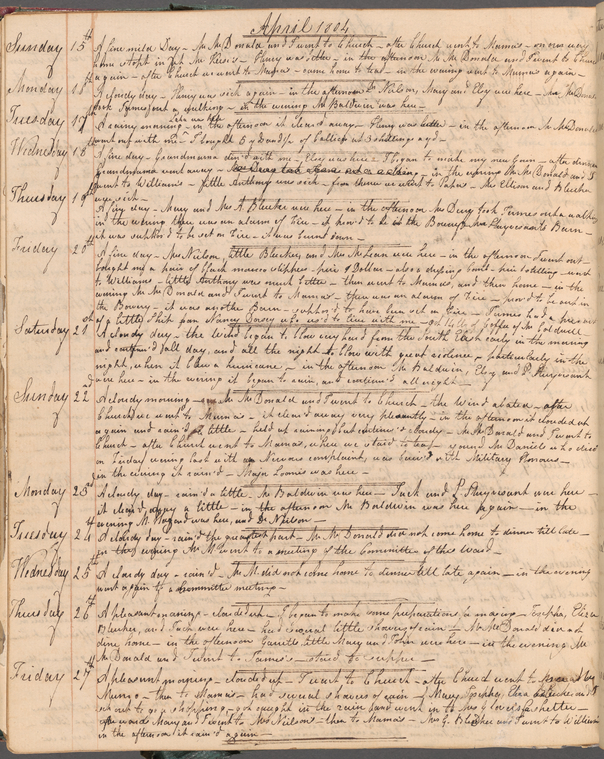 April 1804
Sunday 15th A fine mild Day - Mr McDonald and I went to Church - after Church went to Mama's - on our way
home stopt in at Mr - Henry was better - in the afternoon Mr McDonald and I went to Church
again - after Church we went to Mama's - came home to tea - in the evening went to Mama's again -
Monday 16th A cloudy day - Henry was sick again - in the afternoon Mrs Neilson, Mary and Eliza were here - Mr McDonald
took James out a walking - in the evening Mr Baldwin was here -
Tuesday 17th A rainy morning - in the afternoon it clear'd away - Henry was better - in the afternoon Mr McDonald
went out with me - I bought 5 yds of Callico at 3 shillings a yd -
Wednesday 18 A fine day - Grandmama din'd with me - Eliza was here - I began to make my new gown - after dinner
Grandmama went away - in the evening Mr McDonald and I
went to William's - little Anthony was sick - from there we went to Papa's - Mrs Ellison and Bleecker
were sick -
Thursday 19th A fine day - Mary and Mrs A Bleecker were here - in the afternoon Mr Davy took James out a walking
in the evening there was an alarm of Fire - it prov'd to be in the Bowery - Mr Stuyvesants Barn -
it was suppos'd to be set on Fire - A horse burnt down -
Friday 20th A fine day - Mrs Neilson, little Bleecker, and Mrs McLean were here - in the afternoon I went out
bought me a pair of black morocco slippers - price 1 Dollar - also a dressing comb - price shilling - went
to William's - little Anthony was much better - then went to Mama's, and then home - in the
evening Mr McDonald and I went to Mama's - there was an alarm of Fire - prov'd to be out in
the Bowery - it was another Barn - suppos'd to have been set on Fire - James had a present
of a little from Nancy who us'd to live with me - of Coffee of Mr Caldwell
Saturday 21st A cloudy day - the wind began to blow very hard from the South East early in the morning
and continu'd all day, and all the night to blow with great violence - particularly in the
night, when it blew a hurricane - in the afternoon Mr Baldwin, Eliza and P. Stuyvesant
were here - in the evening it began to rain, and continu'd all night -
Sunday 22d A cloudy morning - Mr McDonald and I went to Church - the Wind abated - after
Church we went to Mama's - it clear'd away very pleasantly - in the afternoon it clouded up
again and rain'd a little - held up raining but continu'd cloudy - Mr McDonald and I went to
Church - after Church went to Mama's, where we staid to tea - young Mr Daniels who died
on Friday evening last with a Nervous complaint, was buried with Military Honours -
in the evening it rain'd - Major Loomis was here -
Monday 23d A cloudy day - rain'd a little - Mr Baldwin was here - Jack and P Stuyvesant were here -
it clear'd away a little - in the afternoon Mr Baldwin was here again - in the
evening Mr was here, and Dr Neilson -
Tuesday 24th A cloudy day - rain'd the greatest part - Mr McDonald did not come home to dinner till late -
in the evening Mr M went to a meeting of the Committee of this ward -
Wednesday 25th A cloudy day - rain'd - Mr M did not come home to dinner till late again - in the evening
went again to a Committee meeting -
Thursday 26th A pleasant morning - clouded up - I began to make some preparations for moving - Sophia, Eliza
Bleecker, and Jack were here - had several little showers of rain - Mr McDonald did not
dine home - in the afternoon little Mary and were here - in the evening Mr
McDonald and I went to James's - staid to supper -
Friday 27th A pleasant morning - clouded up - I went to Church - after Church went to
then to Mama's - had several showers of rain - Mary, Sophia, Eliza Bleecker and I
set out to go a shopping - got caught in the rain and went in to Mrs Glover's for shelter -
afterwards Mary and I went to Mrs Neilson's - then to Mama's - Mrs G. Bleecker and I went to William's
in the afternoon it rain'd again -